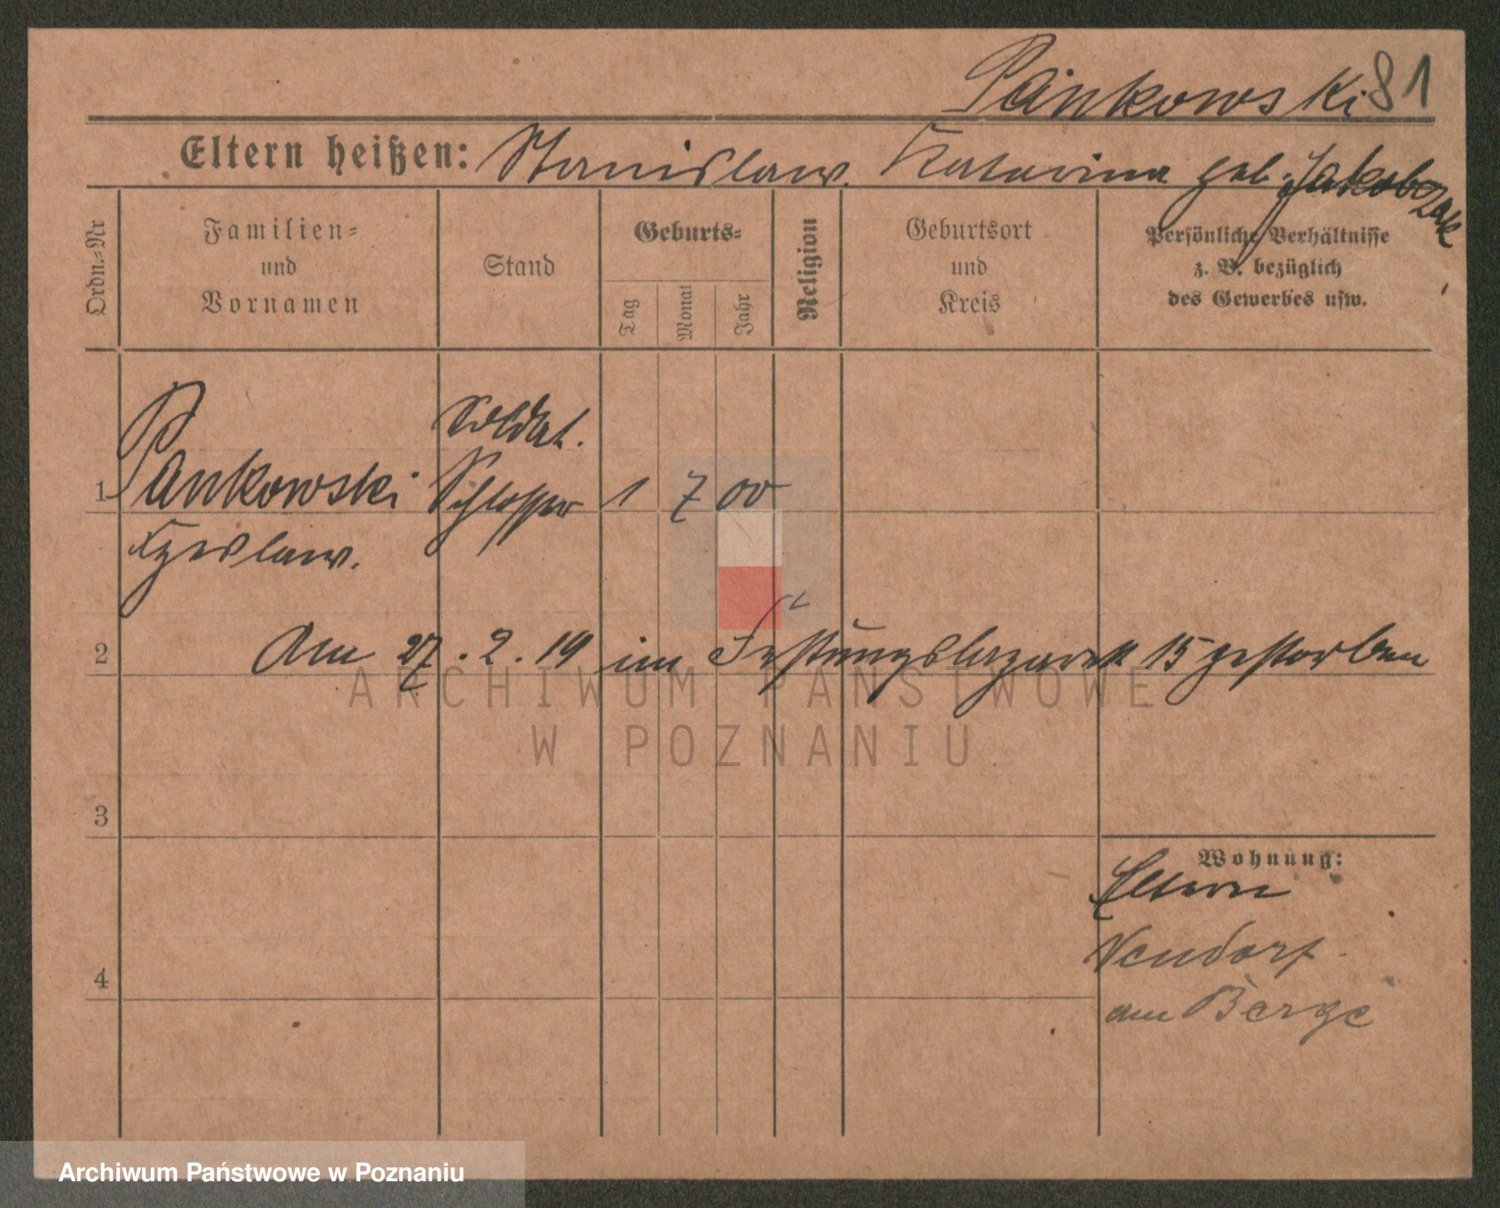 Pankowski 81
Eltern heißen: Stanislaw. Katarina geb. Jakobczak
Ordn.=Nr
Familien=
und
Vornamen
Stand
Geburts=
Tag
Monat
Jahr
Religion
Geburtsort
und
Kreis
Persönliche Verhältnisse
z. B. bezüglich
des Gewerbes usw.
Soldat.
1 Pankowski Schlosser 1 7 00
Czeslaw.
2 Am 27.2.19 im Festungslazarett 15 gestorben
ARCHIWUM PAŃSTWOWE
W POZNANIU
3
Wohnung:
Eltern
Neudorf
4
am Berge
Archiwum Państwowe w Poznaniu